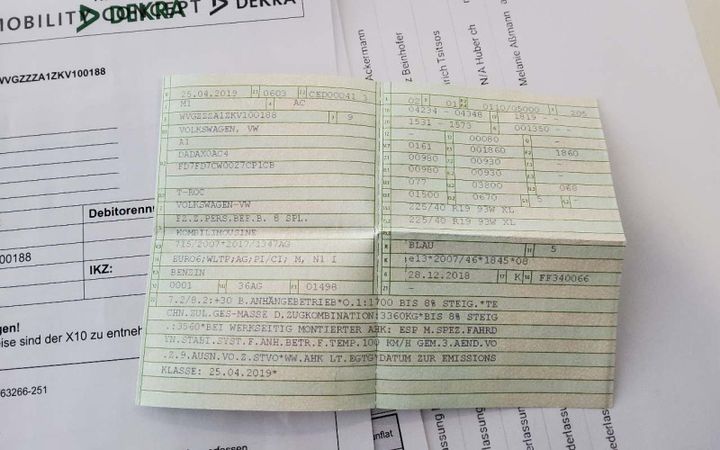 MOBILITY CONCEPT DEKRA
DEKRA
WVGZZZA1ZKV100188
Debitorennu
00188
IKZ:
gen!
eise sind der X10 zu entneh
63266-251
25.04.2019 0603 CED00041 3
M1 AC
WVGZZZA1ZKV100188 9
VOLKSWAGEN, VW
A1
DADAX0AC4
FD7FD7CW00Z7CP1CB
T-ROC
VOLKSWAGEN-VW
FZ.Z.PERS.BEF.B. 8 SPL.
KOMBILIMOUSINE
715/2007*2017/1347AG
EURO6;WLTP;AG;PI/CI; M, N1 I
BENZIN
0001 36AG 01498
02 01 0110/05000 205
04234 - 04348 1819 -
1531 - 1573 001350 - -
- 00080 -
0161 001860 1860
00980 00930
00980 00930 -
077 03800 068
01500 0670 5 -
225/40 R19 93W XL
225/40 R19 93W XL
-
BLAU 5
e13*2007/46*1845*08
28.12.2018 K FF340066
-
7.2/8.2:+30 B.ANHÄNGEBETRIEB*O.1:1700 BIS 8% STEIG.*TE
CHN.ZUL.GES-MASSE D.ZUGKOMBINATION:3360KG*BIS 8% STEIG
.:3560*BEI WERKSEITIG MONTIERTER AHK: ESP M.SPEZ.FAHRD
YN.STABI.SYST.F.ANH.BETR.F.TEMP.100 KM/H GEM.3.AEND.VO
.Z.9.AUSN.VO.Z.STVO*WW.AHK LT.EGTG*DATUM ZUR EMISSIONS
KLASSE: 25.04.2019*
Ackermann
z Beinhofer
rich Tsitsos
N/A Huber ch
Melanie Aßmann